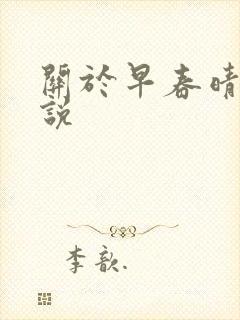 關於早春晴
說
李歆.